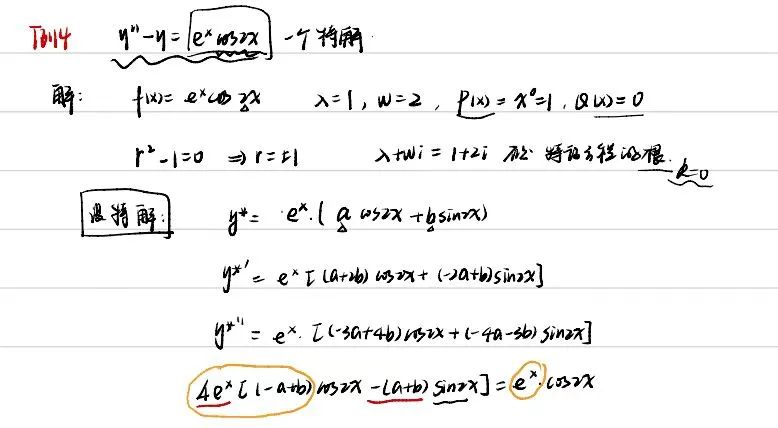 例4 y''-y=e^x cos2x 一个特解.
解: f(x)=e^x cos2x λ=1, w=2, P(x)=x^0=1, Q(x)=0
r^2-1=0 ⇒ r=±1 λ+wi=1+2i 不是 特征方程的根. k=0
设特解: y*= e^x.(a cos2x+b sin2x)
y*'= e^x[(a+2b)cos2x+(-2a+b)sin2x]
y*''= e^x.[(-3a+4b)cos2x+(-4a-3b)sin2x]
4e^x[(-a+b)cos2x-(a+b)sin2x]=e^x.cos2x